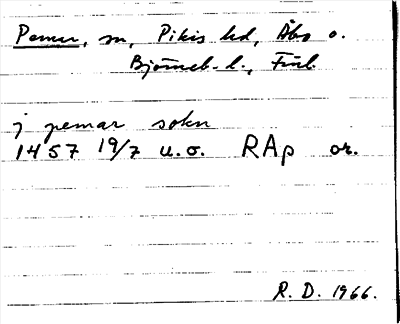 Pemar, sn, Pikis hd, Åbo o.
Björneb. l., Finl.
j pemar sokn
1457 19/7 u.o. RAp or.
R. D. 1966.